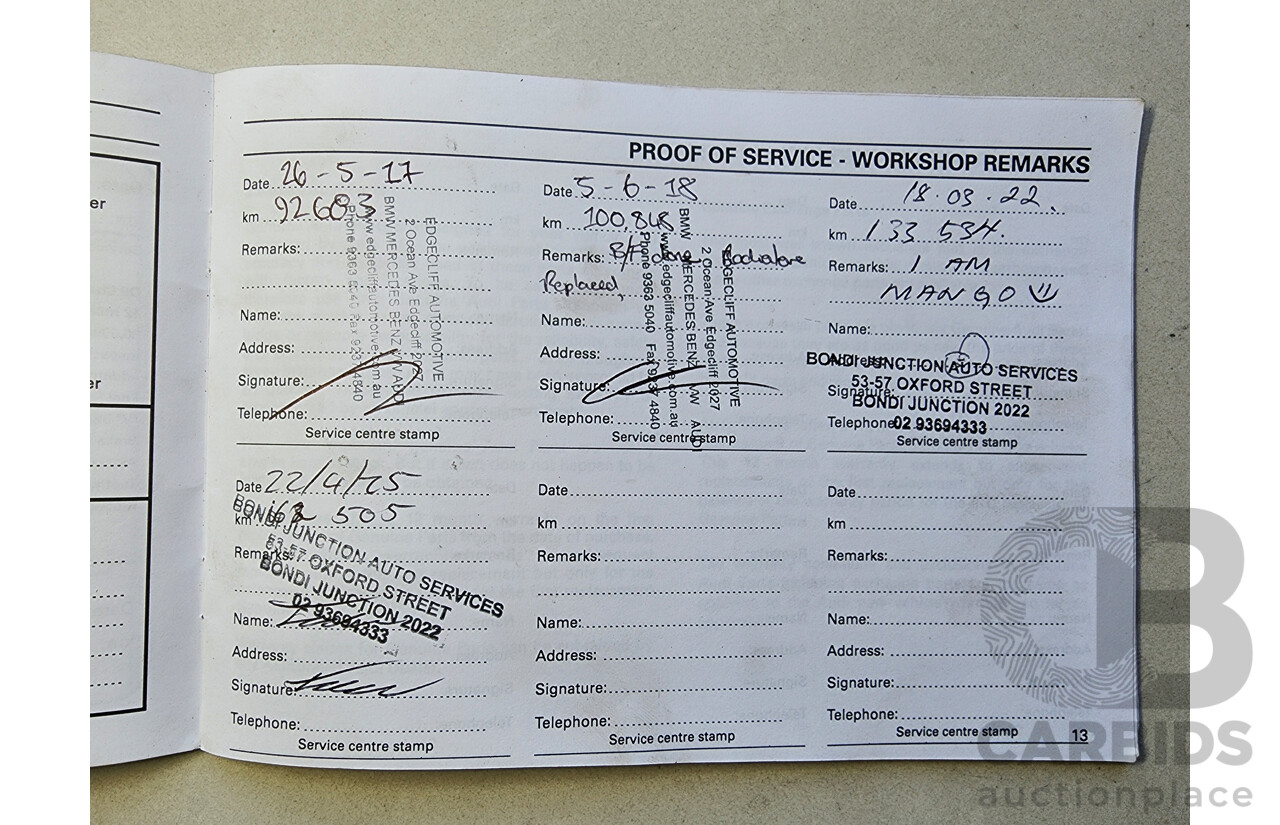 er
er
PROOF OF SERVICE - WORKSHOP REMARKS
Date 26-5-17
km 92683
Remarks:
Name:
Address:
Signature:
Telephone:
Service centre stamp
EDGECLIFF AUTOMOTIVE
2 Ocean Ave Edgecliff 2027
BMW MERCEDES BENZ VW AUDI
www.edgecliffautomotive.com.au
Phone 9363 5040 Fax 9237 4840
Date 5-6-18
km 100,848
Remarks: B/F done
Replaced,
Name:
Address:
Signature:
Telephone:
Service centre stamp
EDGECLIFF AUTOMOTIVE
2 Ocean Ave Edgecliff 2027
BMW MERCEDES BENZ VW AUDI
www.edgecliffautomotive.com.au
Phone 9363 5040 Fax 9237 4840
Date 18.03.22.
km 133 534.
Remarks: 1 AM
MANGO
Name:
Address:
Signature:
Telephone:
BONDI JUNCTION AUTO SERVICES
53-57 OXFORD STREET
BONDI JUNCTION 2022
02 93694333
Service centre stamp
Date 22/4/25
km 505
Remarks:
Name:
Address:
Signature:
Telephone:
BONDI JUNCTION AUTO SERVICES
53-57 OXFORD STREET
BONDI JUNCTION 2022
02 93694333
Service centre stamp
Date
km
Remarks:
Name:
Address:
Signature:
Telephone:
Service centre stamp
Date
km
Remarks:
Name:
Address:
Signature:
Telephone:
Service centre stamp
13
CB
CARBIDS
auctionplace